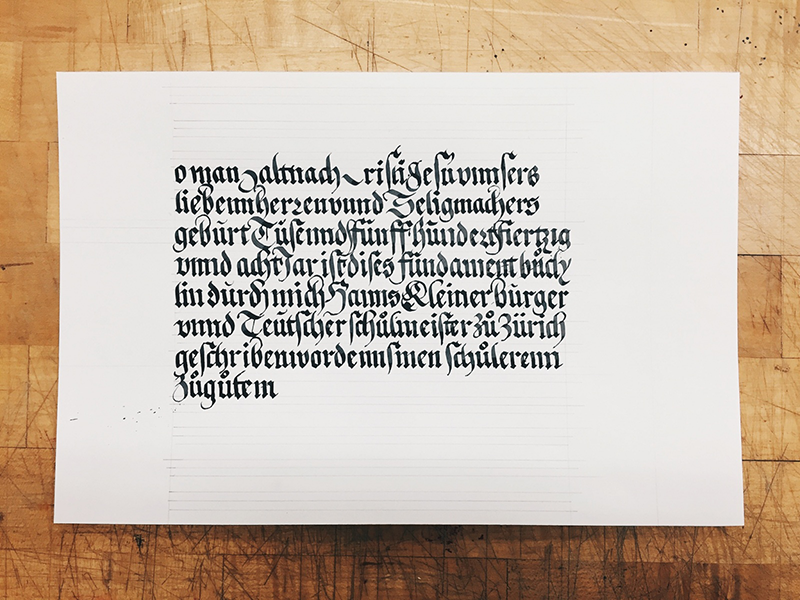 o man zalt nach Cristi Jesu vnnsers
liebenn herren vnnd Seligmachers
geburt Tusennd funff hundert fiertzig
vnnd acht Jar ist dises fundament buͦchly
lin durch mich Hanns Kleiner burger
vnnd Teutscher schuͦlmeister zuͦ Zürich
geschriben worden nn sinen schuͦlerenn
Zuͦ guͦtem